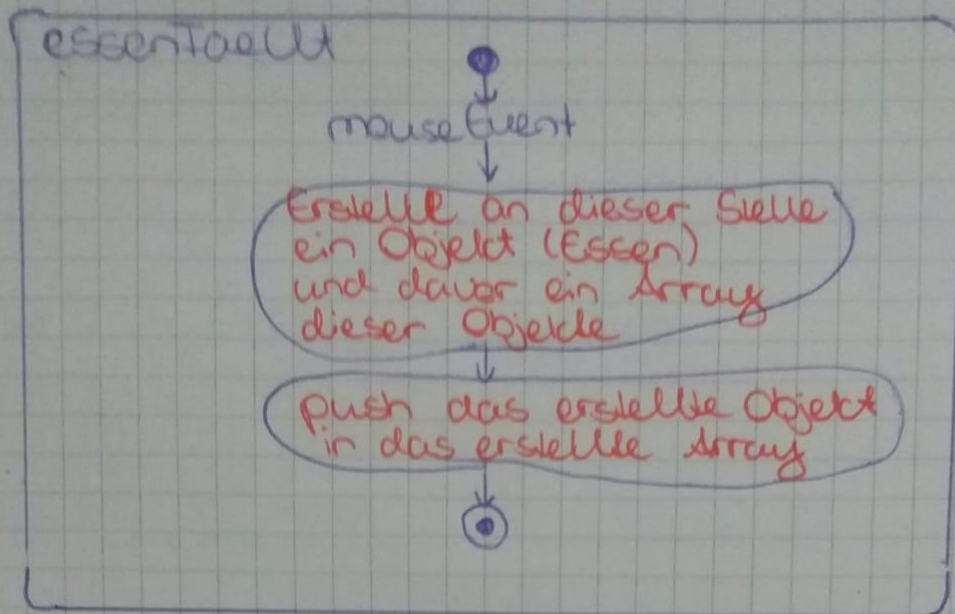 essenFaellt
mouseEvent
Erstelle an dieser Stelle
ein Objekt (Essen)
und davor ein Array
dieser Objekte
push das erstellte Objekt
in das erstellte Array